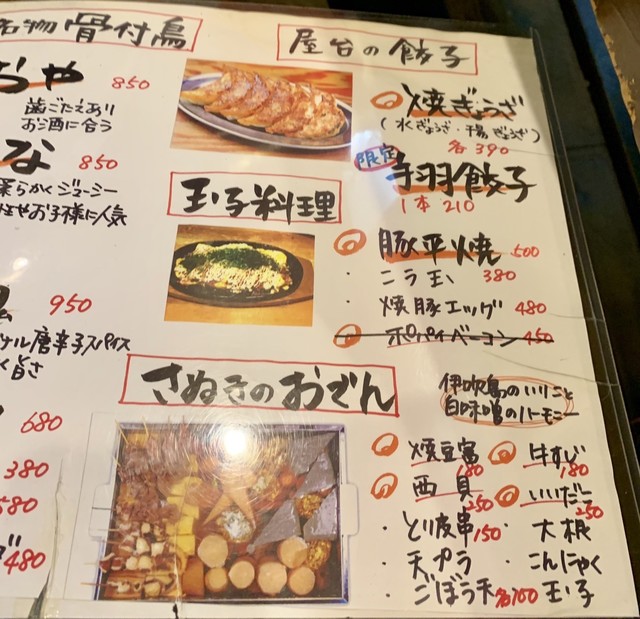 名物 骨付鳥
おや 850
歯ごたえあり
お酒に合う
な 850
柔らかくジューシー
女性やお子様に人気
950
唐辛子スパイス
旨さ
680
380
580
480
屋台の餃子
焼ぎょうざ
(水ぎょうざ・揚ぎょうざ)
各390
限定
手羽餃子
1本 210
玉子料理
豚平焼 500
・ニラ玉 380
・焼豚エッグ 480
ポパイベーコン 450
さぬきのおでん
伊吹島のいりこと
白味噌のハーモニー
焼豆富 180
牛すじ 180
西貝 250
いいだこ 250
・とり皮串 150
・大根
・天プラ
・こんにゃく
・ごぼう天 各100
・玉子